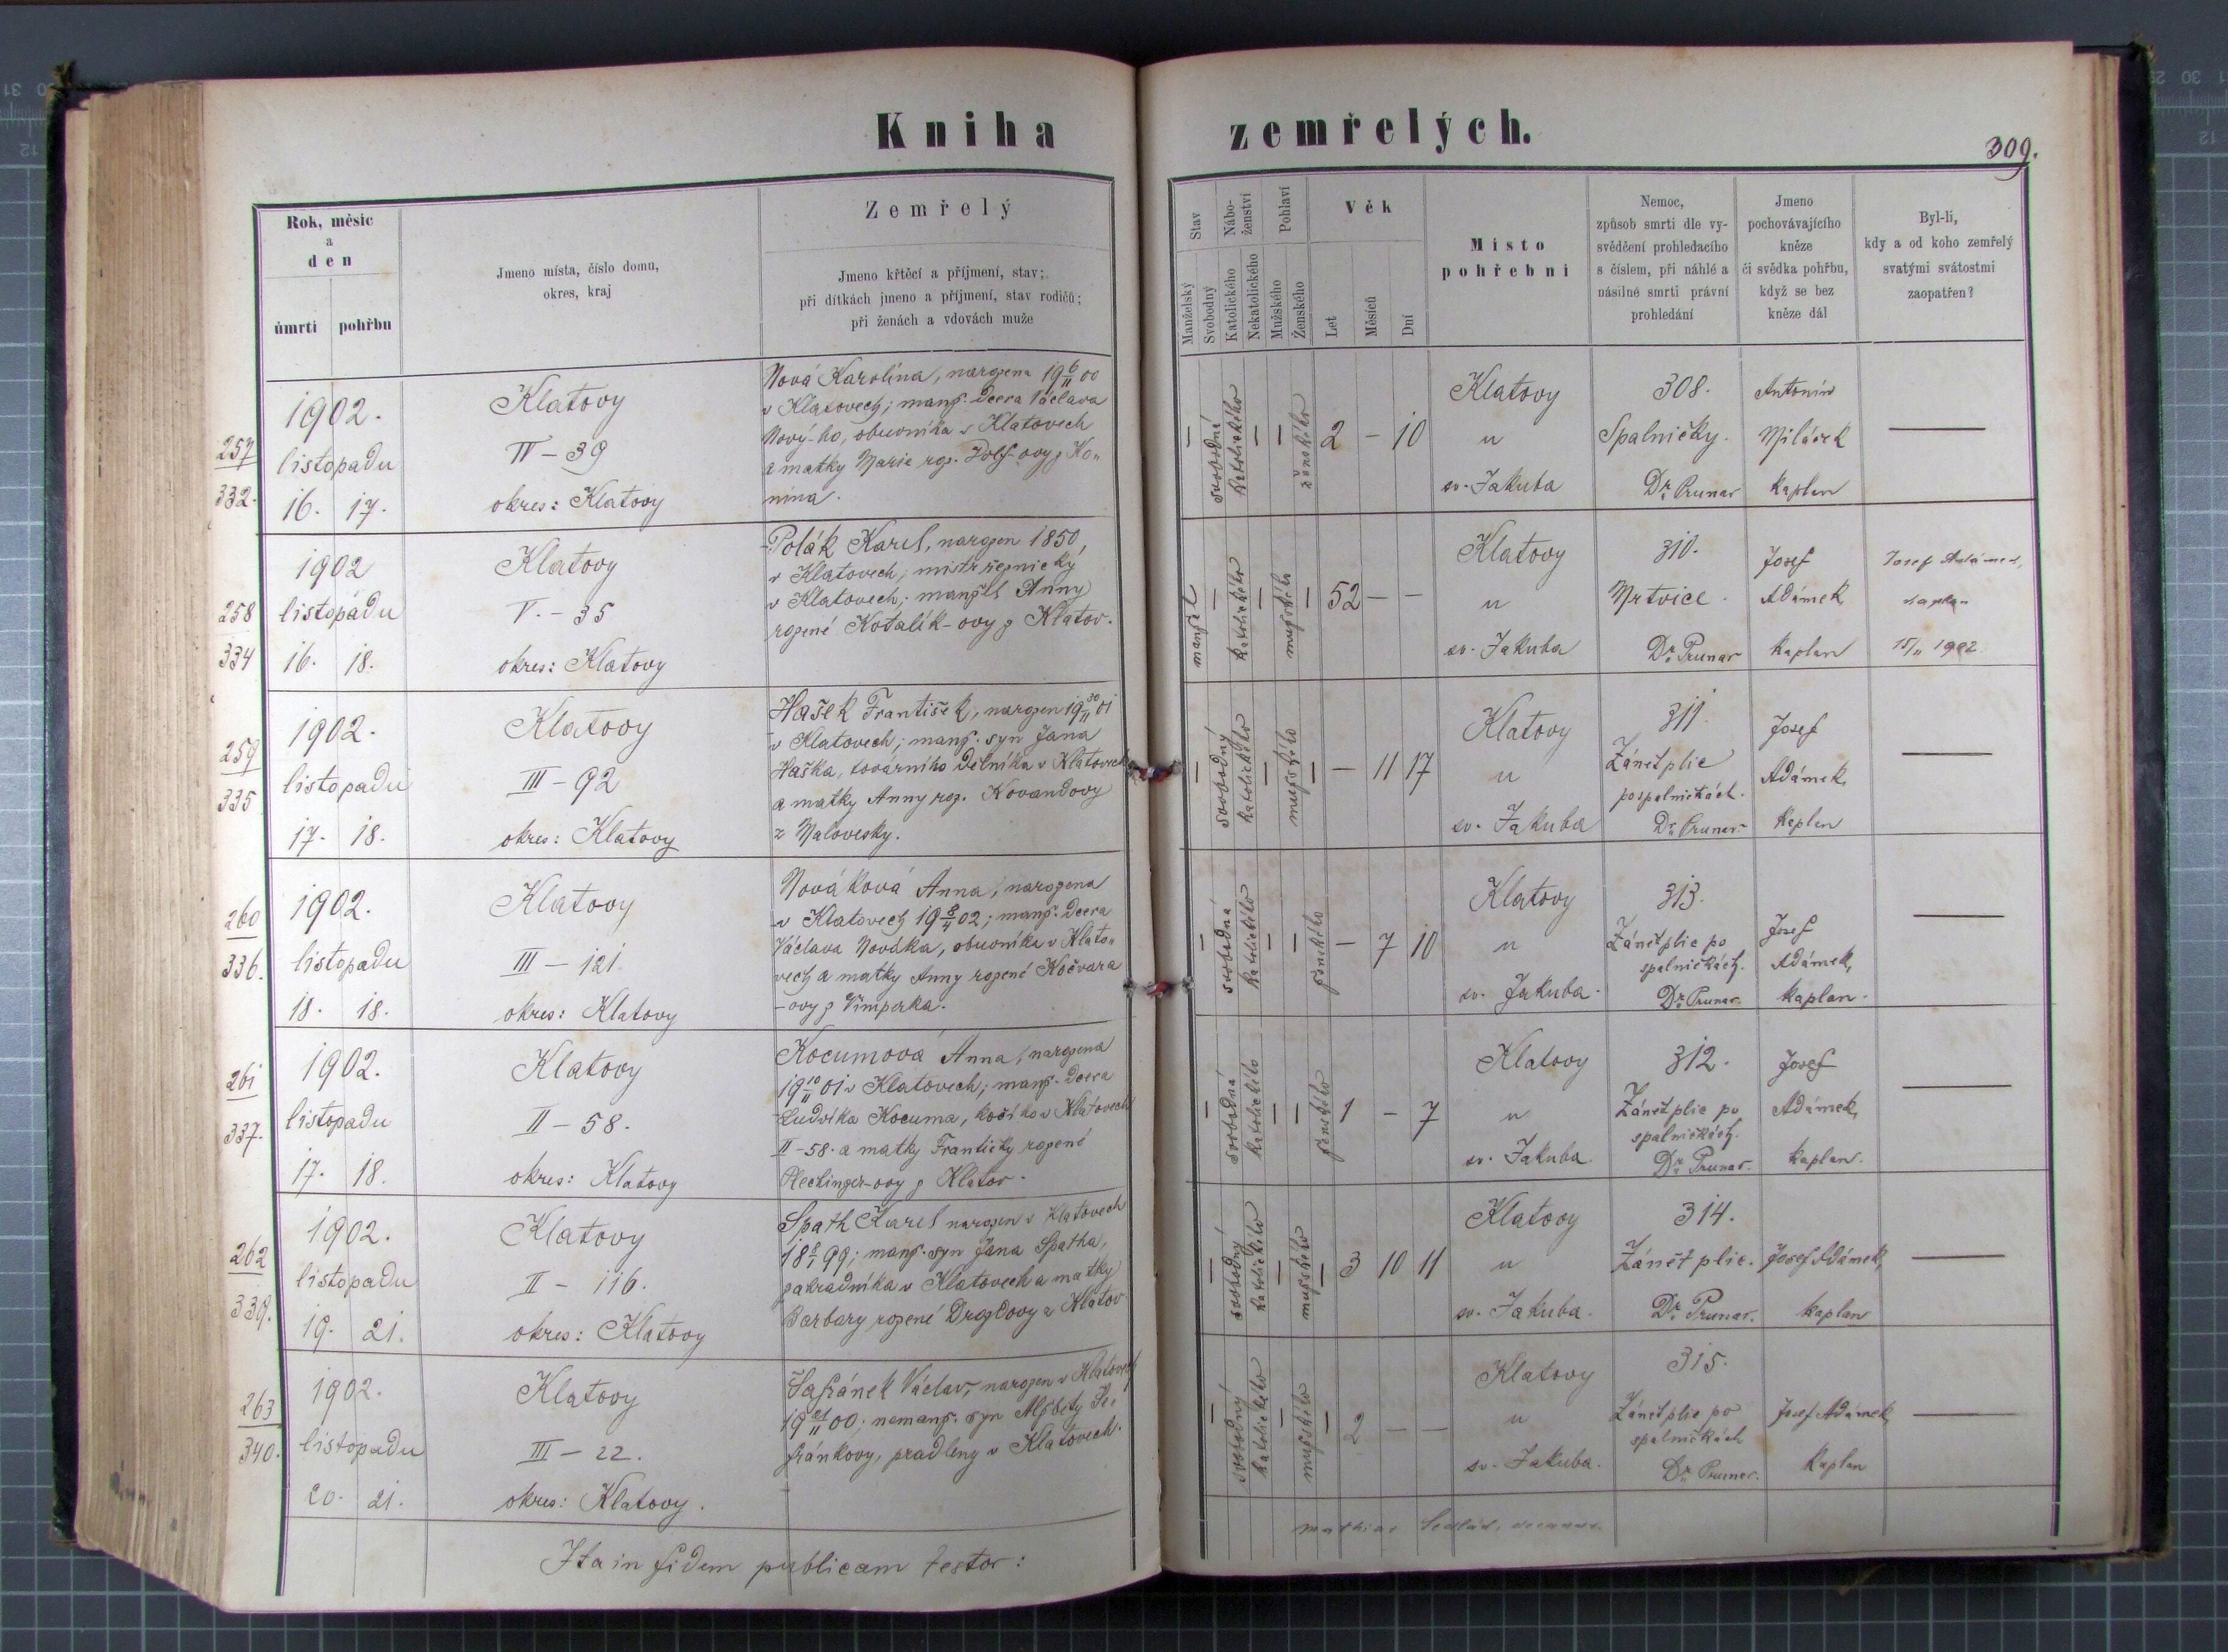 Kniha zemřelých.
309.
Rok, měsíc
a
den
úmrtí
pohřbu
Jmeno místa, číslo domu,
okres, kraj
Zemřelý
Jmeno křtěcí a příjmení, stav;
při dítkách jmeno a příjmení, stav rodičů;
při ženách a vdovách muže
Stav
Manželský
Svobodný
Nábo-
ženství
Katolického
Nekatolického
Pohlaví
Mužského
Ženského
Věk
Let
Měsíců
Dní
Místo
pohřební
Nemoc,
způsob smrti dle vy-
svědčení prohledacího
s číslem, při náhlé a
násilné smrti právní
prohledání
Jmeno
pochovávajícího
kněze
či svědka pohřbu,
když se bez
kněze dál
Byl-li,
kdy a od koho zemřelý
svatými svátostmi
zaopatřen?
257
332.
1902.
listopadu
16. 17.
Klatovy
IV – 39
okres: Klatovy
Nová Karolína, narozena 19 6/11 00
v Klatovech; manž. dcera Václava
Nový-ho, obuvníka v Klatovech
a matky Marie roz.
nina.
– svobodná katolického – – ženského 2 – 10
Klatovy
u
sv. Jakuba
308.
Spalničky.
Dr. Prunar
Antonín
Miláček
kaplan
—
258
334
1902
listopadu
16. 18.
Klatovy
V. – 35
okres: Klatovy
Polák Karel, narozen 1850,
v Klatovech; mistr řeznický
v Klatovech; manžel Anny
rozené Kotalík-ovy z Klatov.
manžel – katolického – mužského – 52 – –
Klatovy
u
sv. Jakuba
310.
Mrtvice.
Dr. Prunar
Josef
Adámek
kaplan
Josef Adámek,
kaplan
15/11 1902
259
335
1902.
listopadu
17. 18.
Klatovy
III – 92
okres: Klatovy
Hašek František, narozen 19 30/11 01
v Klatovech; manž. syn Jana
Haška, továrního dělníka v Klatovech
a matky Anny roz. Kovandovy
z Malovesky.
– svobodný katolického – mužského – – 11 17
Klatovy
u
sv. Jakuba
311.
Zánět plic
po spalničkách.
Dr. Prunar
Josef
Adámek,
kaplan
—
260
336.
1902.
listopadu
18. 18.
Klatovy
III – 121.
okres: Klatovy
Nováková Anna, narozena
v Klatovech 19 8/4 02; manž. dcera
Václava Nováka, obuvníka v Klato-
vech a matky Anny rozené Kočvara
-ovy z Vimperka.
– svobodná katolického – – ženského – 7 10
Klatovy
u
sv. Jakuba.
313.
Zánět plic po
spalničkách.
Dr. Prunar.
Josef
Adámek,
kaplan.
—
261
337.
1902.
listopadu
17. 18.
Klatovy
II – 58.
okres: Klatovy
Kocumová Anna, narozena
19 10/11 01 v Klatovech; manž. dcera
Ludvíka Kocuma, v Klatovech
II – 58. a matky Františky rozené
z Klatov.
– svobodná katolického – – ženského 1 – 7
Klatovy
u
sv. Jakuba.
312.
Zánět plic po
spalničkách.
Dr. Prunar.
Josef
Adámek,
kaplan.
—
262
339.
1902.
listopadu
19. 21.
Klatovy
II – 116.
okres: Klatovy
Spath Karel narozen v Klatovech
18 8/1 99; manž. syn Jana Spatha,
zahradníka v Klatovech a matky
Barbory rozené Drozdovy z Klatov
– svobodný katolického – mužského – 3 10 11
Klatovy
u
sv. Jakuba.
314.
Zánět plic.
Dr. Prunar.
Josef Adámek,
kaplan
—
263
340.
1902.
listopadu
20. 21.
Klatovy
III – 22.
okres: Klatovy.
Šafránek Václav, narozen v Klatovech
19 21/11 00; nemanž. syn Alžběty Ša-
fránkovy, pradleny v Klatovech.
– svobodný katolického – mužského – 2 – –
Klatovy
u
sv. Jakuba.
315.
Zánět plic po
spalničkách
Dr. Prunar.
Josef Adámek
kaplan
—
Ita in fidem publicam testor: